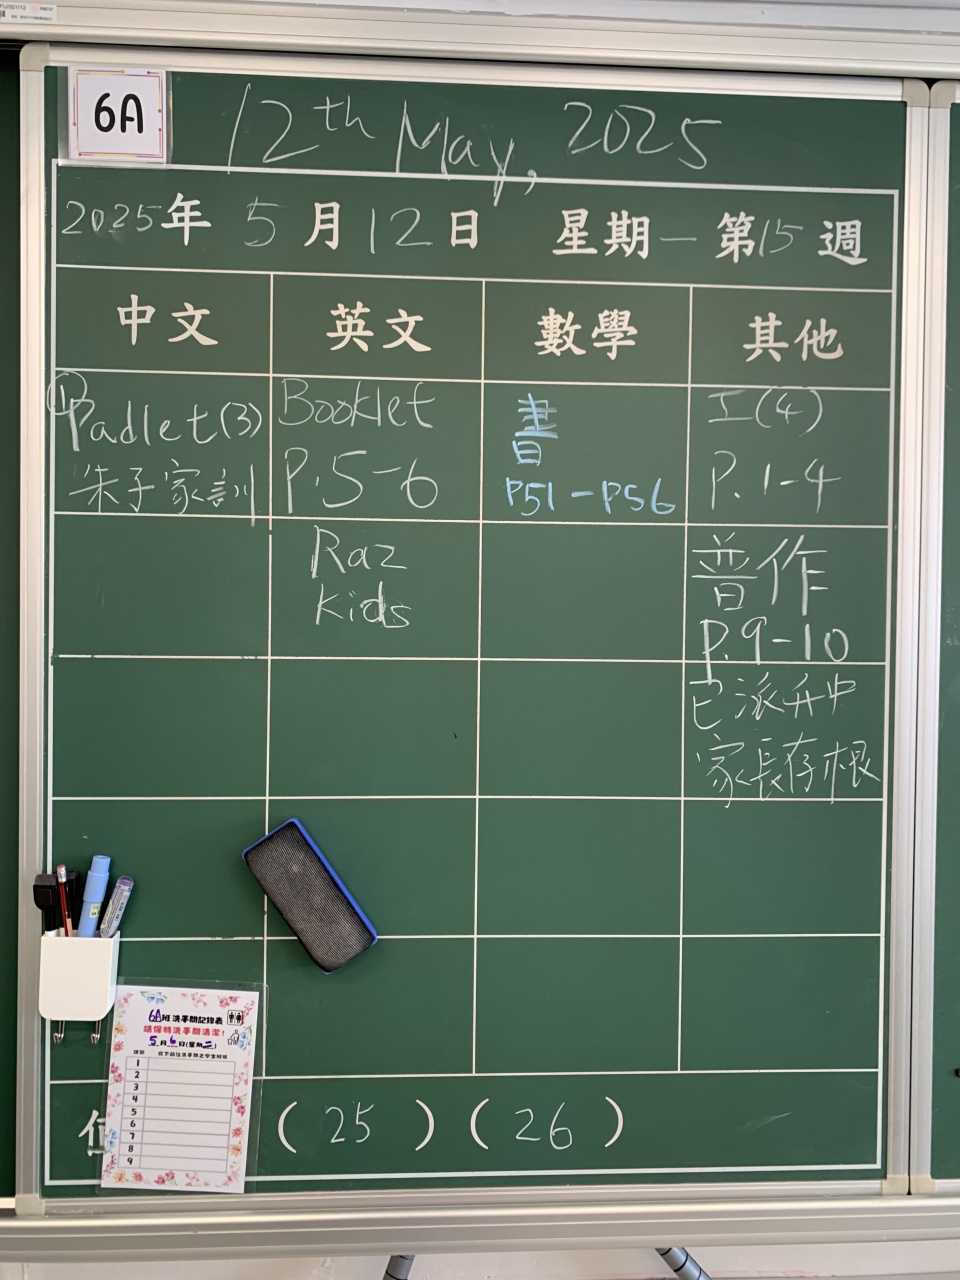 6A
12th May, 2025
2025年 5月12日 星期一 第15週
中文 英文 數學 其他
①Padlet(3)
朱子家訓
Booklet
P.5-6
書
P51-P56
工(4)
P.1-4
Raz
Kids
普作
P.9-10
已派升中
家長存根
(25)(26)
6A班洗手間記錄表
請保持洗手間清潔！
5月6日(星期二)
1
2
3
4
5
6
7
8
9